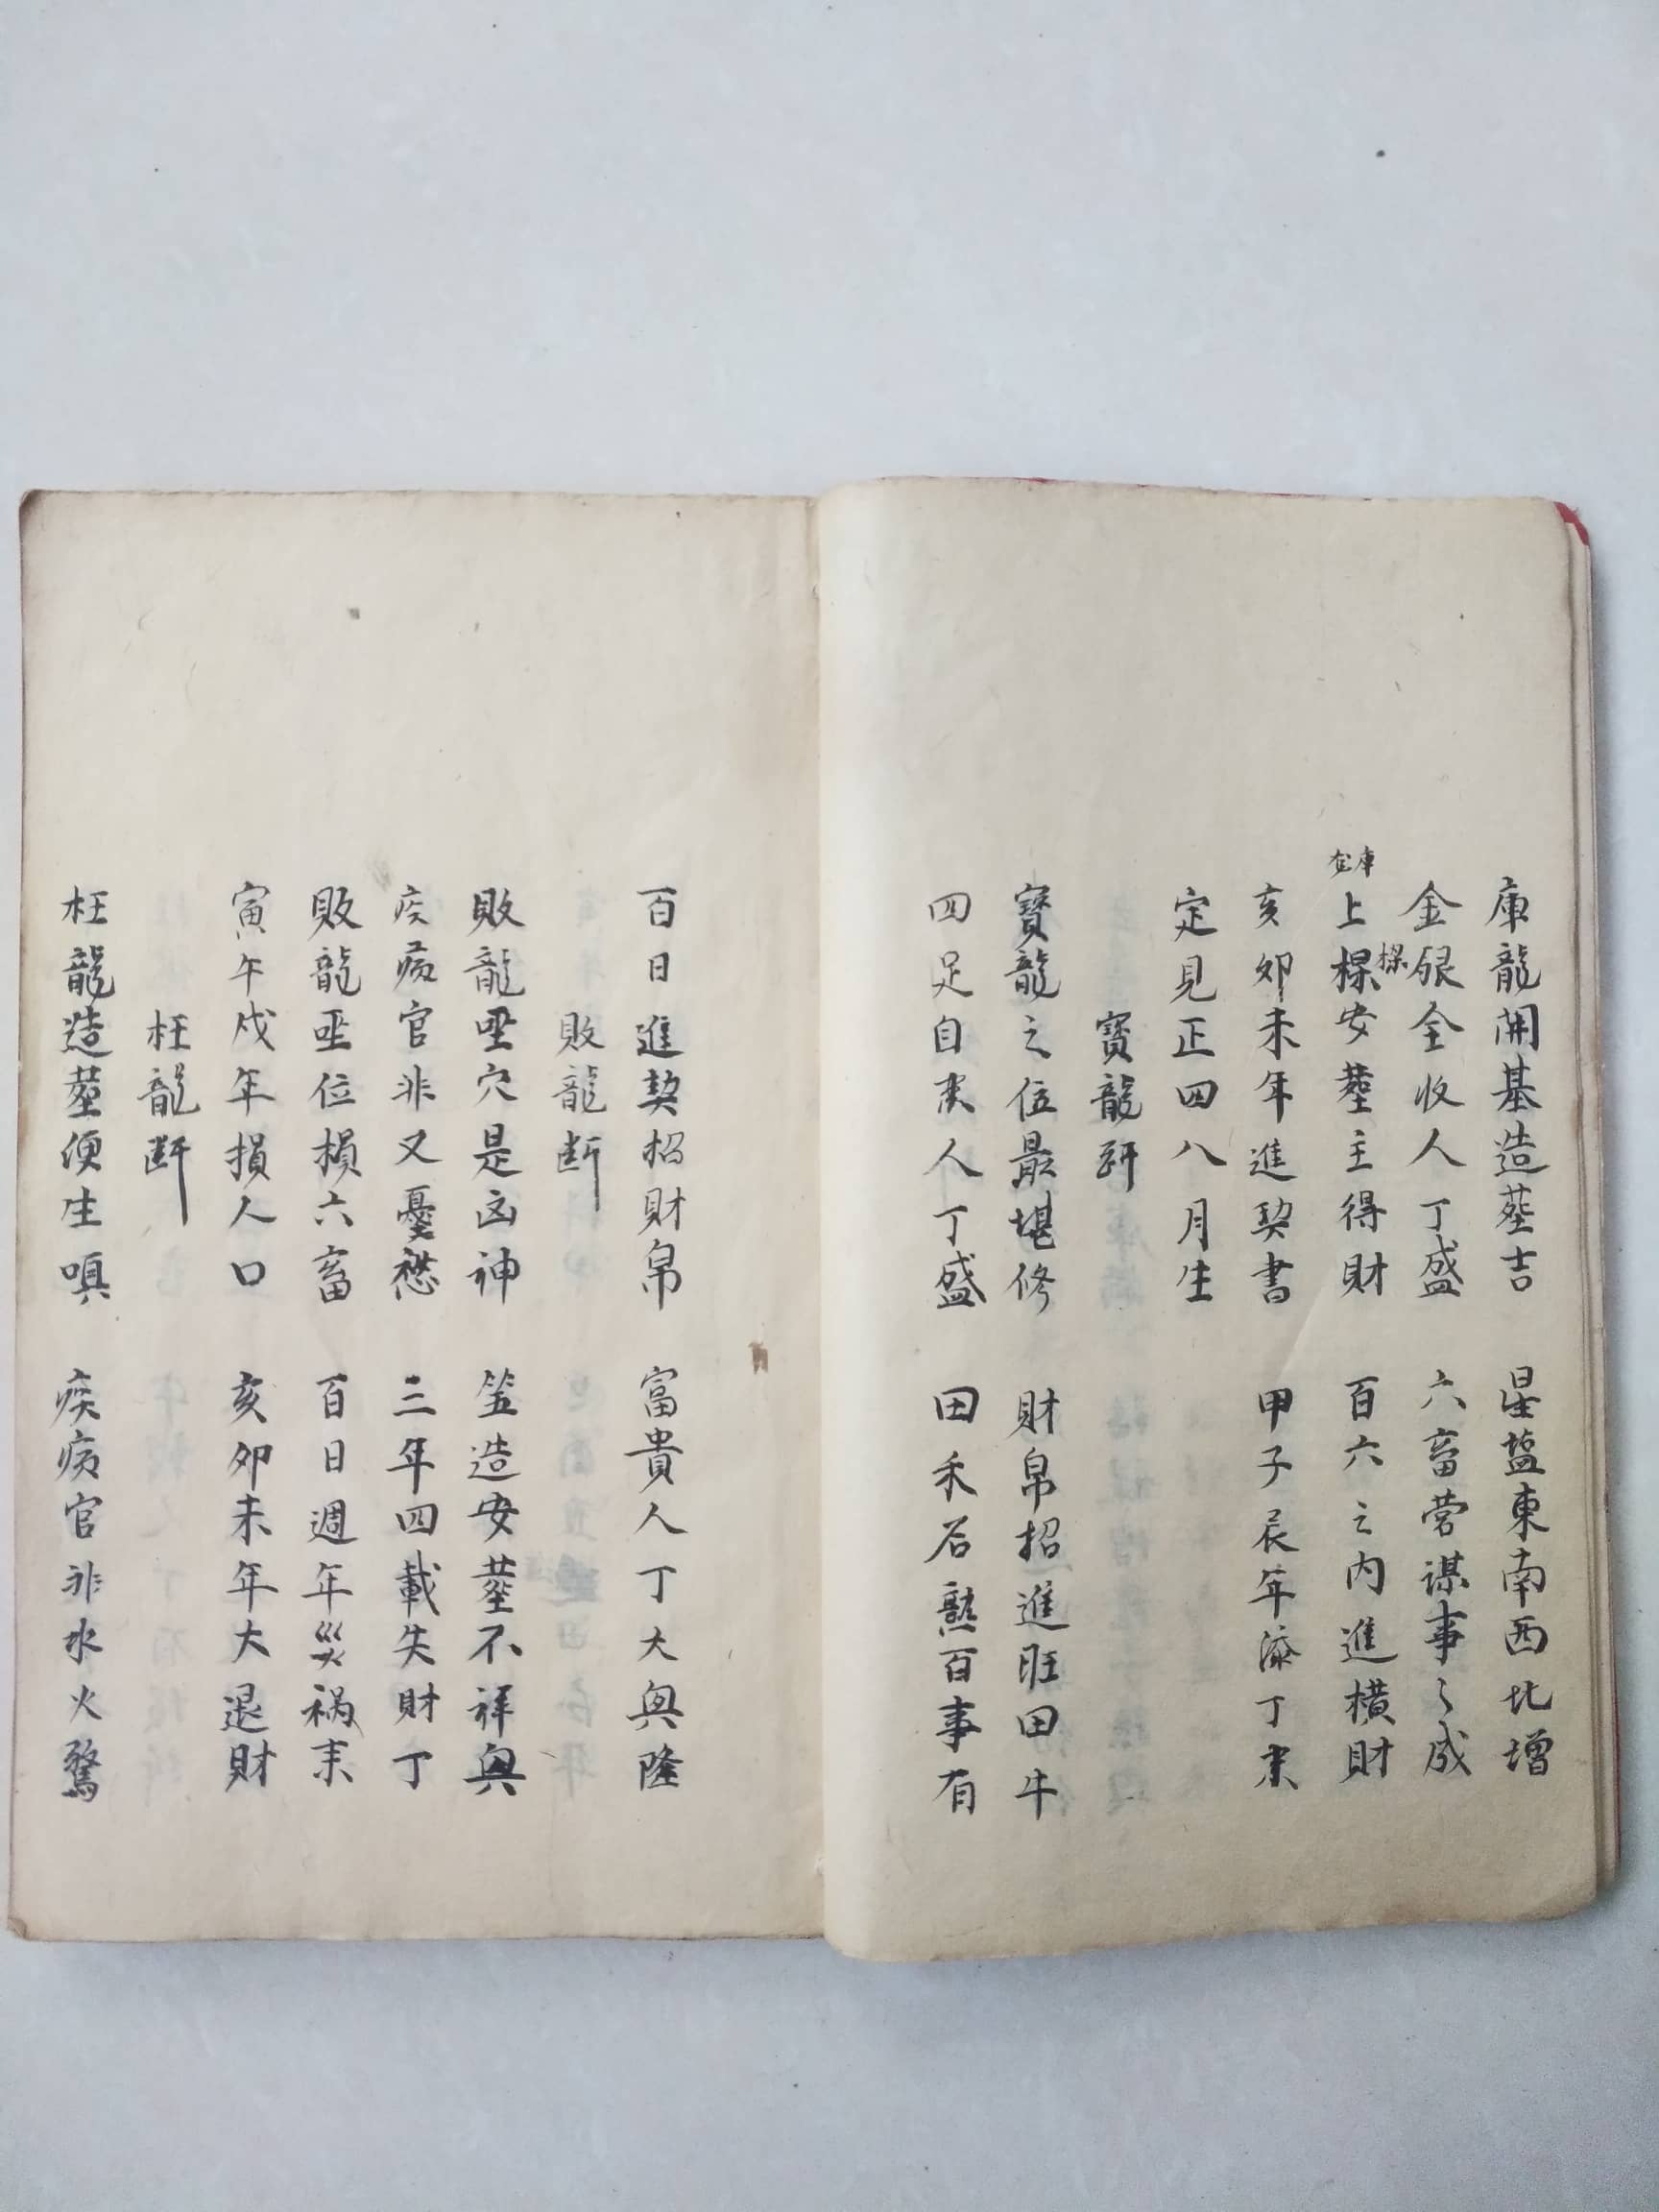 庫龍開基造塟吉 星蓝東南西北增
金銀全收人丁盛 六畜营谋事々成
库
上樑安塟主得財 百六之内進横財
樑
亥卯未年進契書 甲子辰年添丁来
定見正四八月生
寶龍斷
寶龍之位最堪修 財帛招進旺田牛
四足自来人丁盛 田禾石熟百事有
百日進契招財帛 富貴人丁大興隆
敗龍断
敗龍坐穴是凶神 竖造安塟不祥興
疾病官非又憂愁 三年四載失財丁
敗龍坐位損六畜 百日週年災禍来
寅午戌年損人口 亥卯未年大退財
枉龍断
枉龍造塟便生嗔 疾病官非水火驚